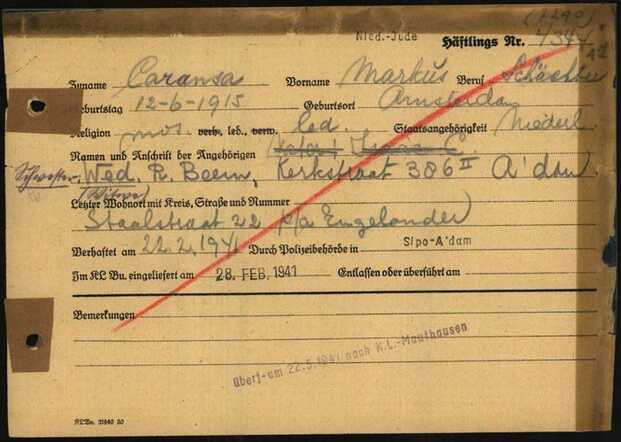 (7290)
Nied.-Jude Häftlings Nr. 
Zuname Caransa Vorname Markus Beruf
Geburtstag 12-6-1915 Geburtsort Amsterdam
Religion mos. verh., led., verw. led. Staatsangehörigkeit Niederl.
Namen und Anschrift der Angehörigen
Schwester Wed. R. Beem, Kerkstraat 386 II A'dam
(Witwe)
Letzter Wohnort mit Kreis, Straße und Nummer
Staalstraat 22 p/a Engelander
Verhaftet am 22.2.1941 Durch Polizeibehörde in Sipo-A'dam
Im KL Bu. eingeliefert am 28. FEB. 1941 Entlassen oder überführt am
Bemerkungen
überf. am 22.5.1941 nach K.L.-Mauthausen